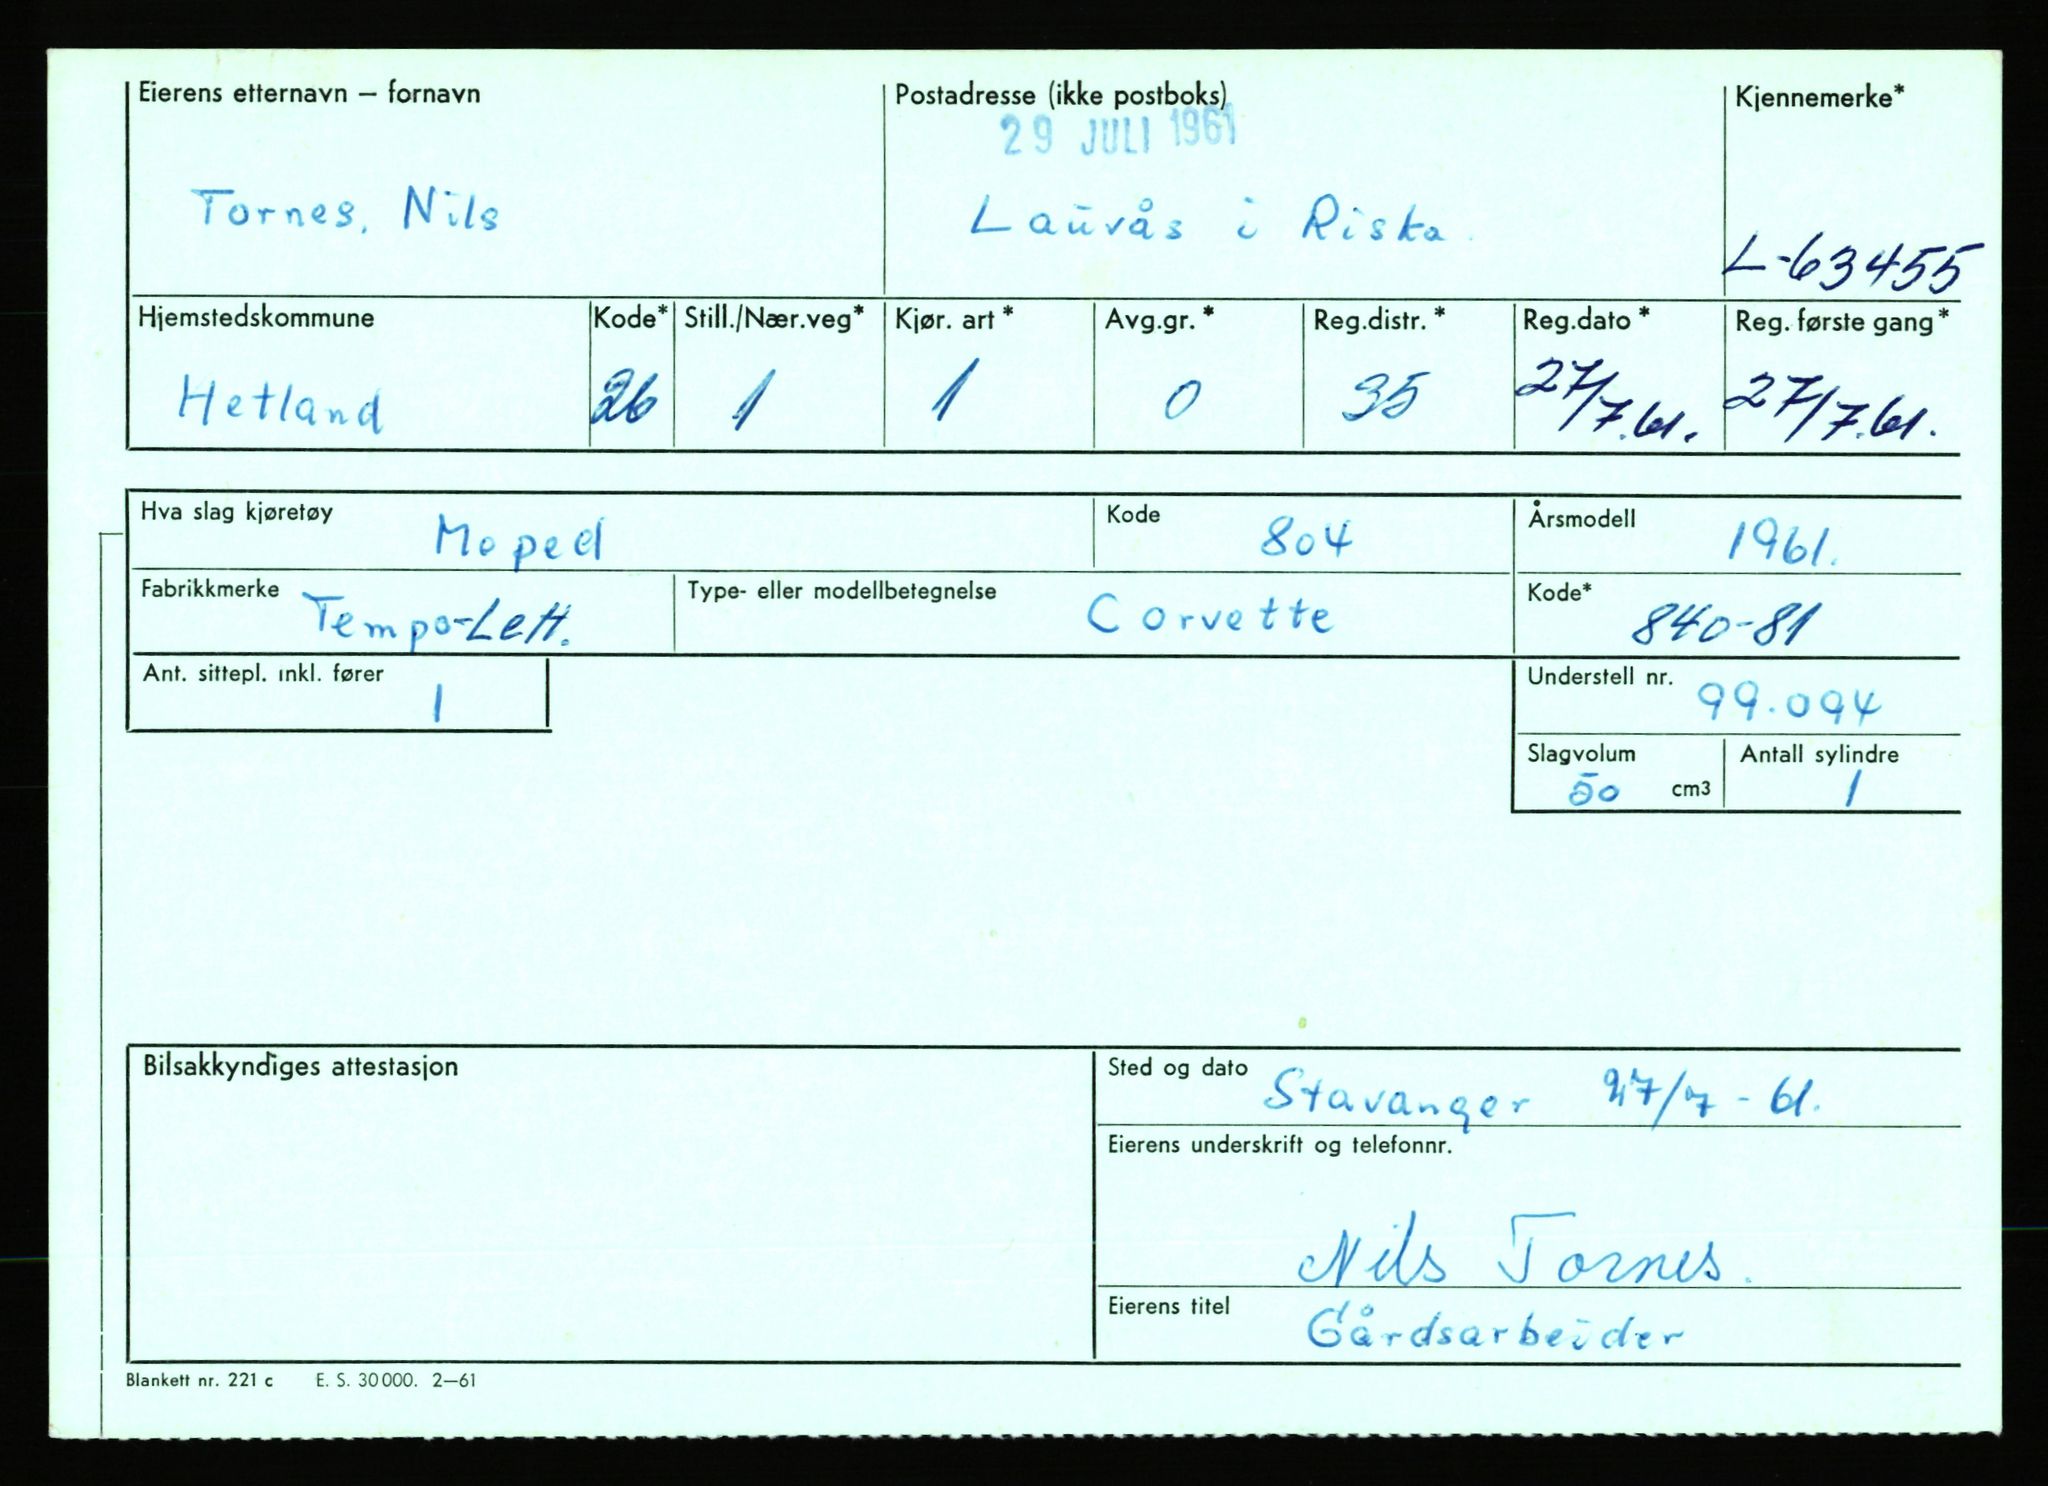 Eierens etternavn – fornavn
Postadresse (ikke postboks)
Kjennemerke*
29 JULI 1961
Tornes, Nils
Lauvås i Riska.
L-63455
Hjemstedskommune
Kode*
Still./Nær.veg*
Kjør. art*
Avg.gr.*
Reg.distr.*
Reg.dato*
Reg. første gang*
Hetland
26
1
1
0
35
27/7.61.
27/7.61.
Hva slag kjøretøy
Moped
Kode
804
Årsmodell
1961.
Fabrikkmerke
Tempo-Lett.
Type- eller modellbetegnelse
Corvette
Kode*
840-81
Ant. sittepl. inkl. fører
1
Understell nr.
99.094
Slagvolum
50 cm3
Antall sylindre
1
Bilsakkyndiges attestasjon
Sted og dato
Stavanger 27/7 - 61.
Eierens underskrift og telefonnr.
Nils Tornes.
Eierens titel
Gårdsarbeider
Blankett nr. 221 c E. S. 30000. 2–61